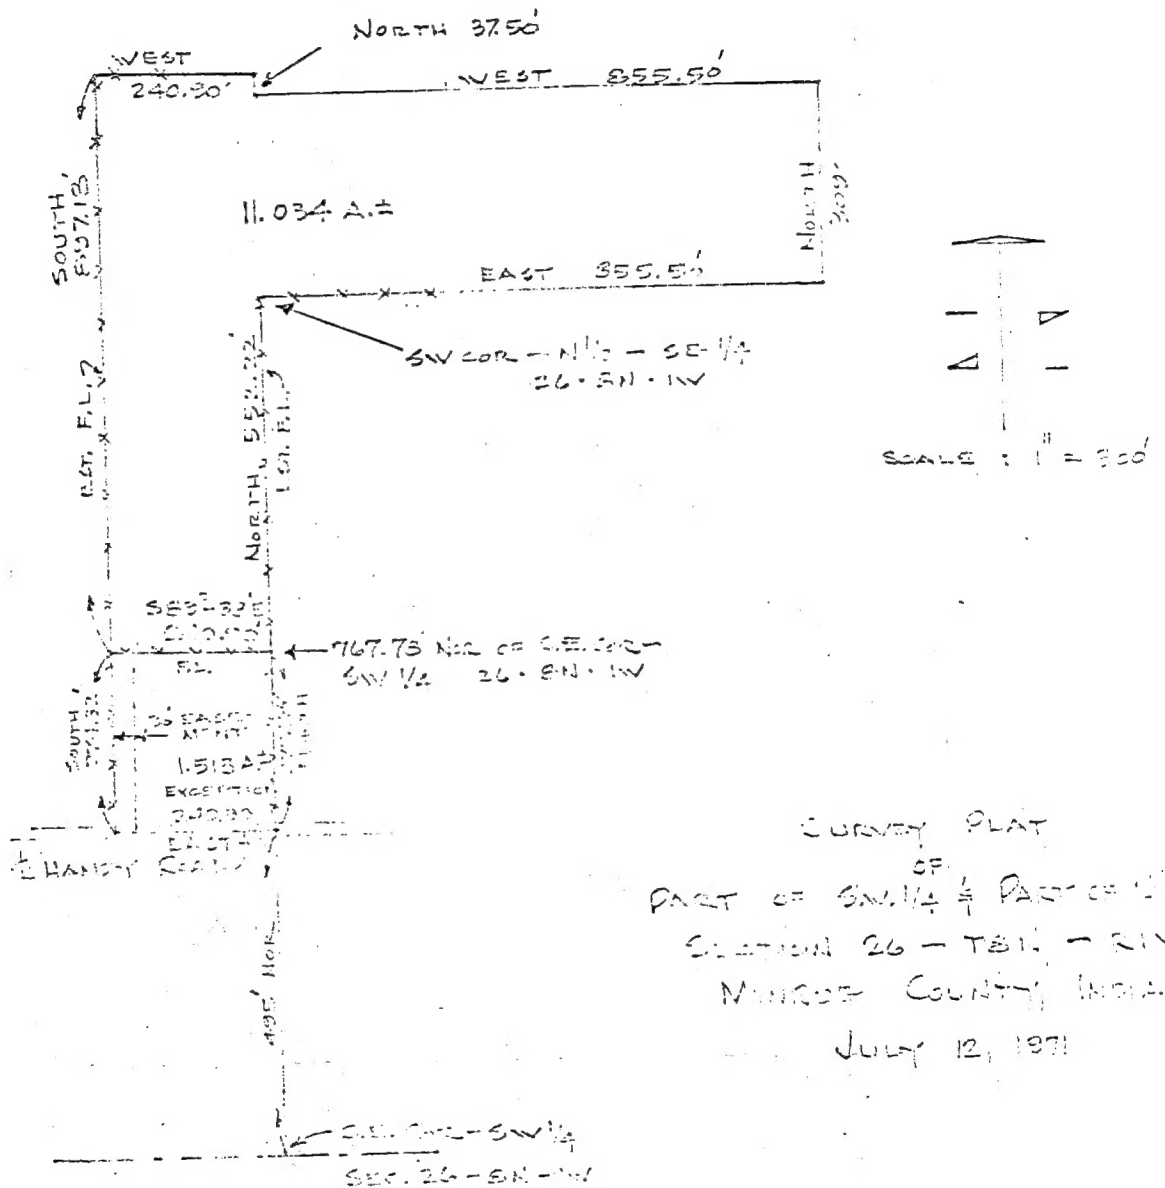 NORTH 37.50'
WEST
240.90'
WEST 855.50'
SOUTH
897.13'
11.034 A.±
NORTH
309'
EAST 855.50'
SW COR - N 1/2 - SE 1/4
26 · 8N · 1W
RGT. F.L.?
NORTH
1 ST. F.L.?
SCALE : 1" = 300'
S83°-33'E
F.L.
767.73' NOR OF S.E. COR -
SW 1/4 26 · 8N · 1W
SOUTH
30' EASE-
MENT
1.513 A.±
EXCEPTION
EAST
℄ HANDY ROAD
495' NOR
S.E. COR - SW 1/4
SEC. 26 - 8N - 1W
SURVEY PLAT
OF
PART OF SW. 1/4 & PART OF
SECTION 26 - T8N - R1W
MONROE COUNTY, INDIA
JULY 12, 1971